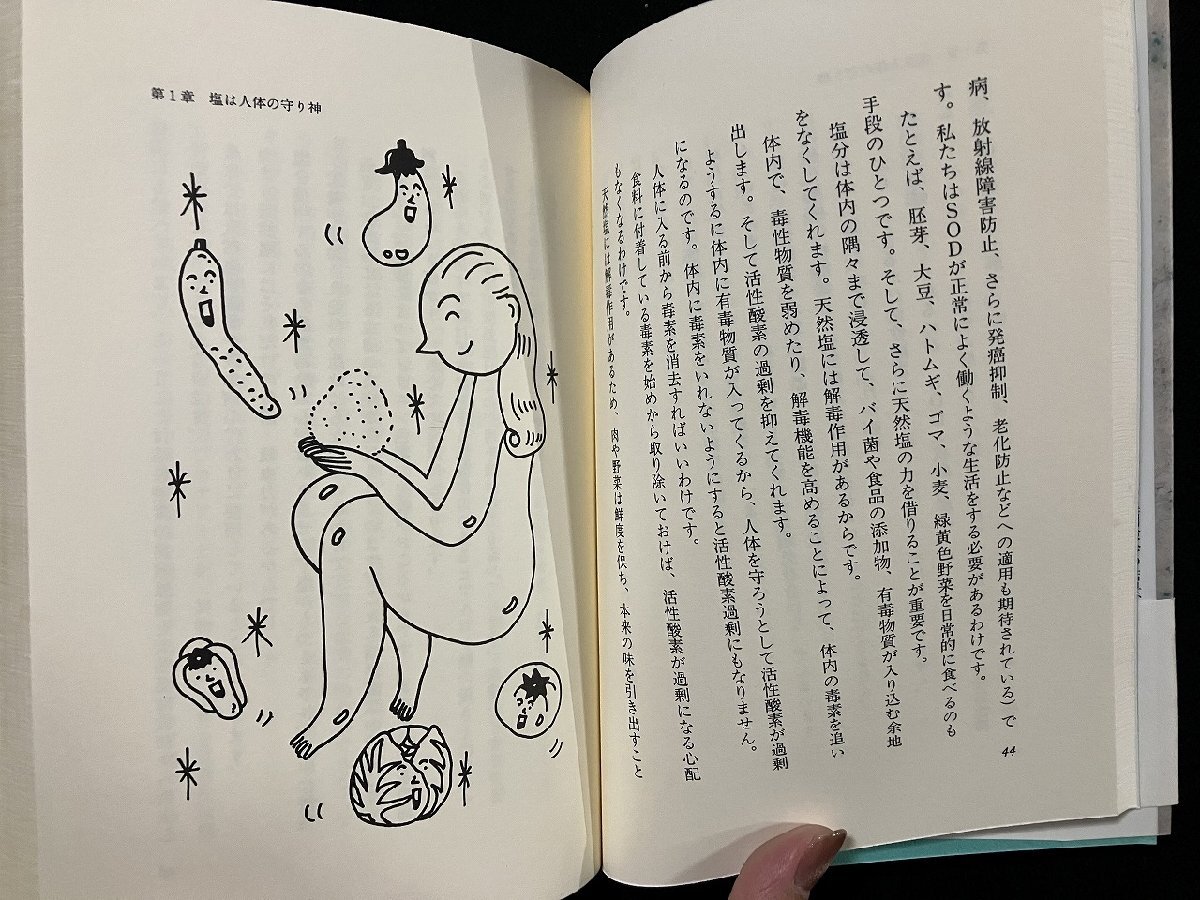 病、放射線障害防止、さらに発癌抑制、老化防止などへの適用も期待されている)で
す。私たちはSODが正常によく働くような生活をする必要があるわけです。
たとえば、胚芽、大豆、ハトムギ、ゴマ、小麦、緑黄色野菜を日常的に食べるのも
手段のひとつです。そして、さらに天然塩の力を借りることが重要です。
塩分は体内の隅々まで浸透して、バイ菌や食品の添加物、有毒物質が入り込む余地
をなくしてくれます。天然塩には解毒作用があるからです。
体内で、毒性物質を弱めたり、解毒機能を高めることによって、体内の毒素を追い
出します。そして活性酸素の過剰を抑えてくれます。
ようするに体内に有毒物質が入ってくるから、人体を守ろうとして活性酸素が過剰
になるのです。体内に毒素をいれないようにすると活性酸素過剰にもなりません。
人体に入る前から毒素を消去すればいいわけです。
食料に付着している毒素を始めから取り除いておけば、活性酸素が過剰になる心配
もなくなるわけです。
天然塩には解毒作用があるため、肉や野菜は鮮度を保ち、本来の味を引き出すこと
44
第1章 塩は人体の守り神